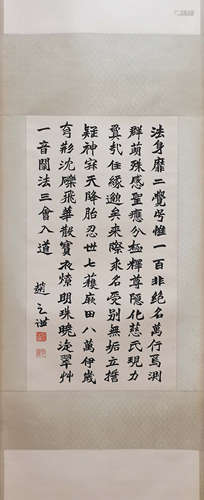 法身靡二覺号惟一百非絕名萬行焉測
群萌殊感聖應分極釋尊隱化慈氏現力
翼
任緣逈矣來際求名受別無垢立擔
疑神
天降胎忍世七
田八萬伊歲
育形沈礫飛華散寶衣
明珠曉淩翠艸
一音闡法三會入道
趙之謙